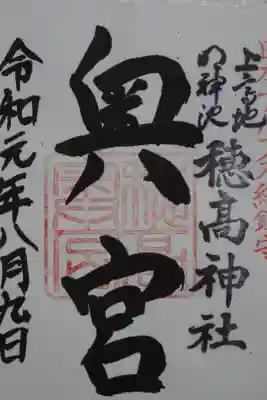 上高地
明神池
穂高神社
奥宮
令和元年八月九日